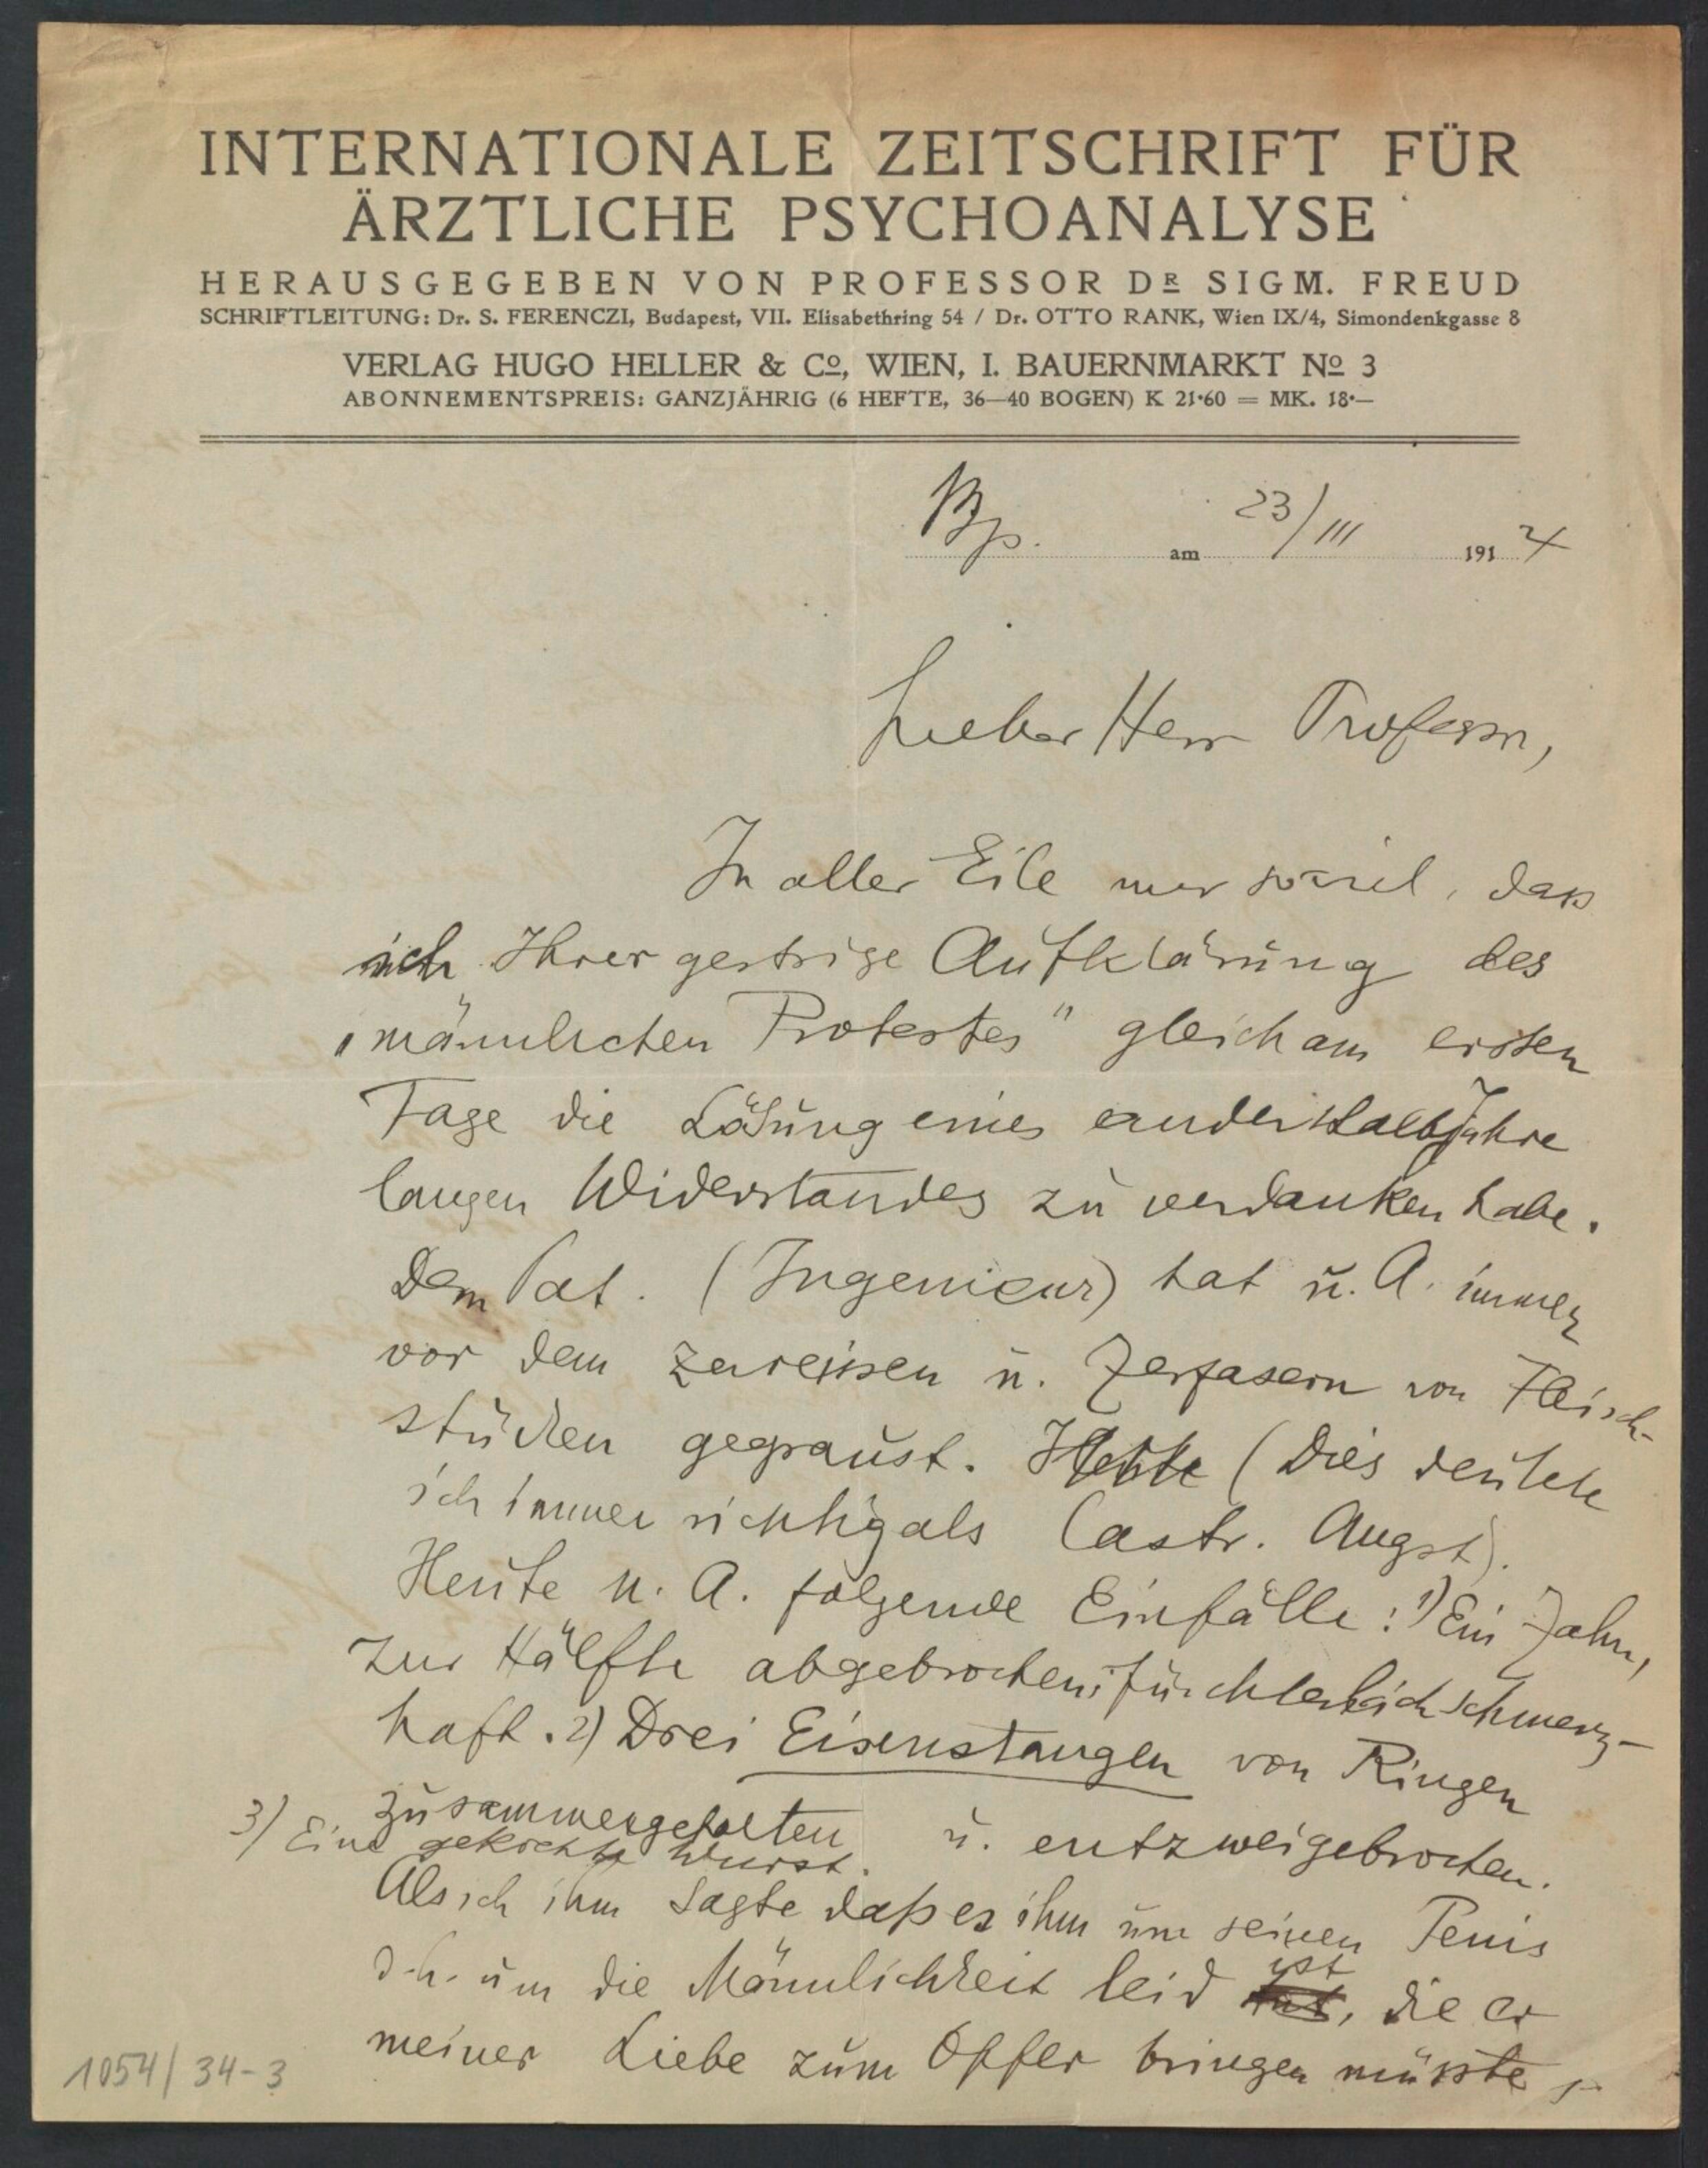 INTERNATIONALE ZEITSCHRIFT FÜR
ÄRZTLICHE PSYCHOANALYSE
HERAUSGEGEBEN VON PROFESSOR DR SIGM. FREUD
SCHRIFTLEITUNG: Dr. S. FERENCZI, Budapest, VII. Elisabethring 54 / Dr. OTTO RANK, Wien IX/4, Simondenkgasse 8
VERLAG HUGO HELLER & Co, WIEN, I. BAUERNMARKT No 3
ABONNEMENTSPREIS: GANZJÄHRIG (6 HEFTE, 36—40 BOGEN) K 21·60 = MK. 18·—
Bp. am 23/III 1914
Lieber Herr Professor,
In aller Eile nur soviel, daß
ich Ihrer gestrige Aufklärung des
„männlichen Protestes" gleich am ersten
Tage die Lösung eines anderthalb Jahre
langen Widerstandes zu verdanken habe.
Dem Pat. (Ingenieur) hat u. A. immer
vor dem Zerreissen u. Zerfasern von Fleisch-
stücken gegraust. (Dies deutete
ich immer richtig als Castr. Angst).
Heute u. A. folgende Einfälle: 1) Ein Zahn,
zur Hälfte abgebrochen; fürchterlich schmerz-
haft. 2) Drei Eisenstangen von Ringen
zusammengehalten u. entzweigebrochen.
3) Eine gekochte Wurst.
Als ich ihm sagte daß es ihm um seinen Penis
d. h. um die Männlichkeit leid ist, die er
meiner Liebe zum Opfer bringen müsste,
1054/34-3